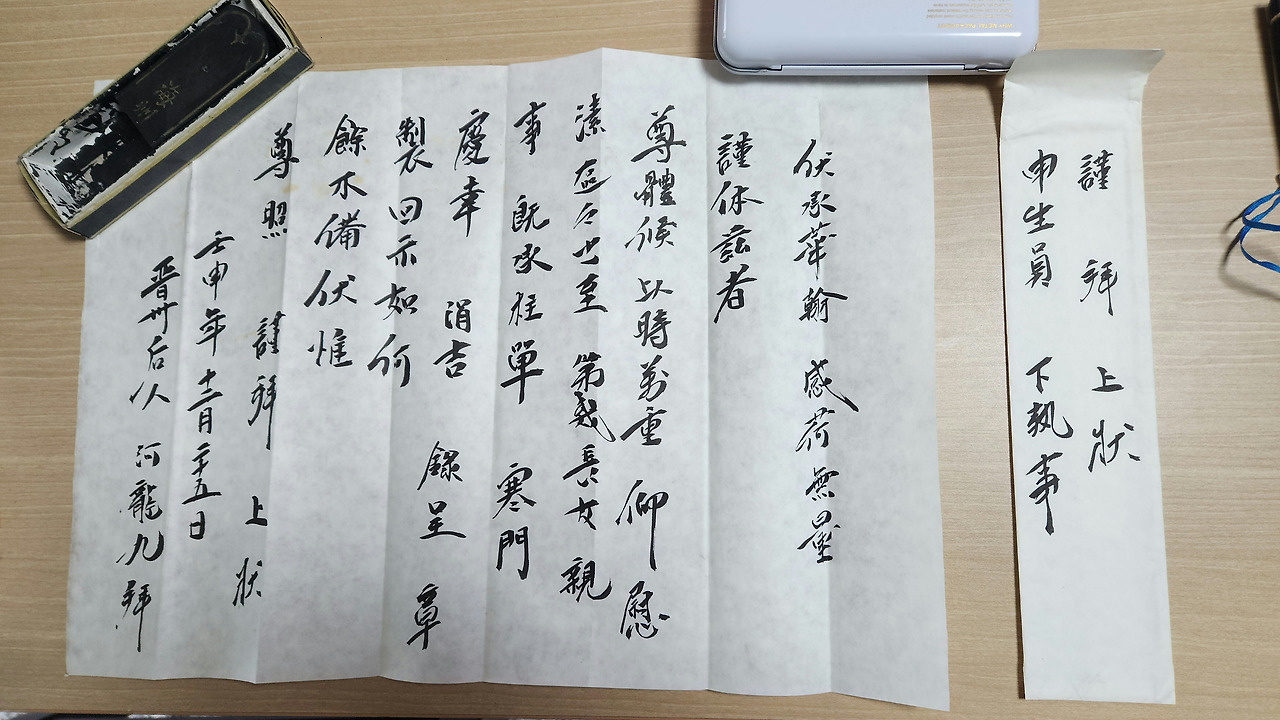 謹 拜 上狀
申生員 下執事
伏承華翰 感荷無量
謹休玆者
尊體候 以時萬重 仰慰
溸區々之至 第幾長女親
事 旣承柱單 寒門
慶幸 涓吉 錄呈 章
製回示如何
餘不備伏惟
尊照 謹拜 上狀
壬申年 十二月二十五日
晋州后人 河龍九 拜
海州